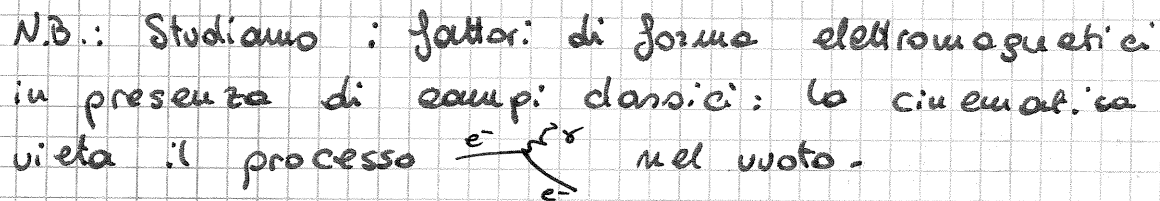 N.B.: Studiamo i fattori di forma elettromagnetici
in presenza di campi classici: la cinematica
vieta il processo e⁻ γ e⁻ nel vuoto.